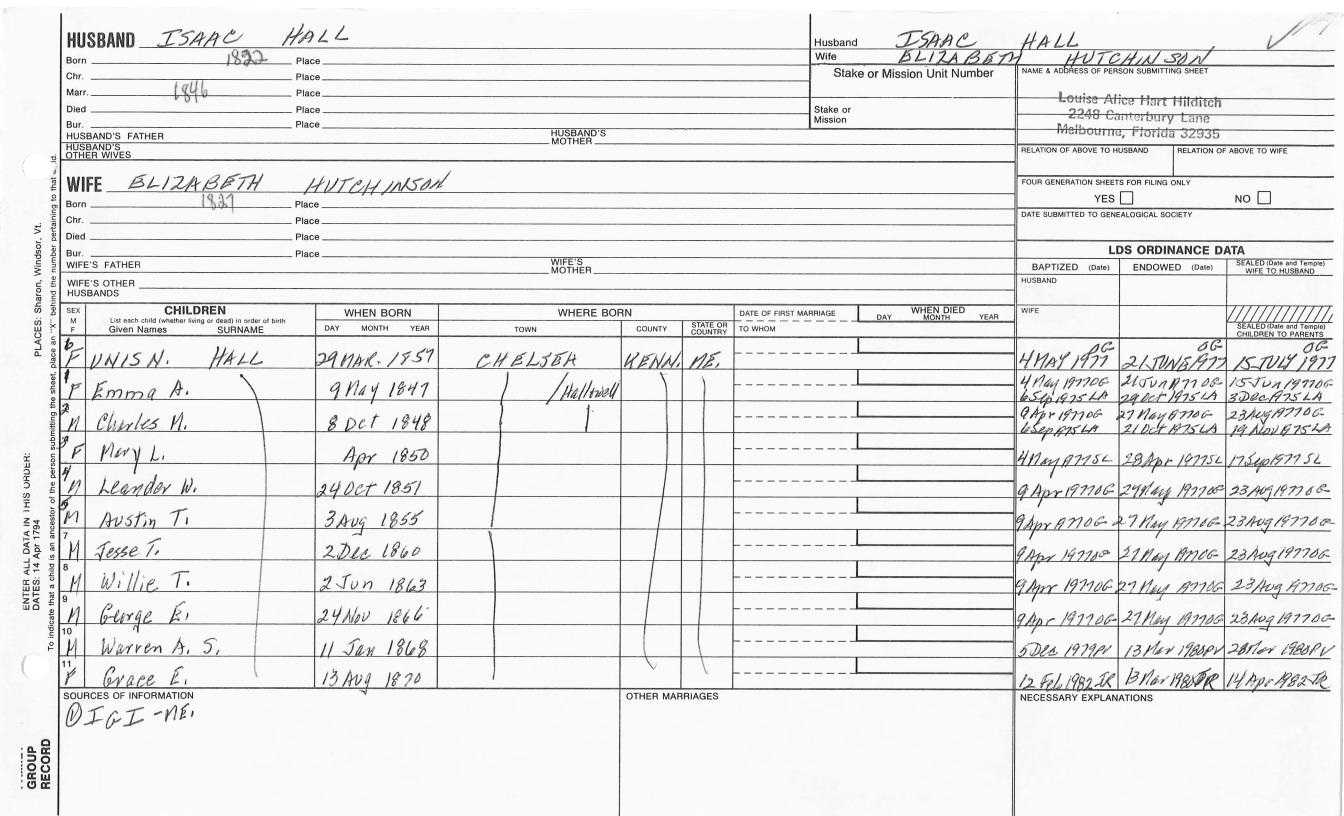 HUSBAND ISAAC HALL
Born 1822 Place
Chr. Place
Marr. 1846 Place
Died Place
Bur. Place
HUSBAND'S FATHER HUSBAND'S MOTHER
HUSBAND'S OTHER WIVES
WIFE ELIZABETH HUTCHINSON
Born 1827 Place
Chr. Place
Died Place
Bur. Place
WIFE'S FATHER WIFE'S MOTHER
WIFE'S OTHER HUSBANDS
Husband ISAAC HALL
Wife ELIZABETH HUTCHINSON
Stake or Mission Unit Number
Stake or Mission
NAME & ADDRESS OF PERSON SUBMITTING SHEET
Louise Alice Hart Hilditch
2248 Canterbury Lane
Melbourne, Florida 32935
RELATION OF ABOVE TO HUSBAND RELATION OF ABOVE TO WIFE
FOUR GENERATION SHEETS FOR FILING ONLY
YES NO
DATE SUBMITTED TO GENEALOGICAL SOCIETY
LDS ORDINANCE DATA
BAPTIZED (Date) ENDOWED (Date) SEALED (Date and Temple) WIFE TO HUSBAND
HUSBAND
WIFE
SEALED (Date and Temple) CHILDREN TO PARENTS
SEX M F CHILDREN WHEN BORN WHERE BORN DATE OF FIRST MARRIAGE WHEN DIED
List each child (whether living or dead) in order of birth
Given Names SURNAME DAY MONTH YEAR TOWN COUNTY STATE OR COUNTRY TO WHOM DAY MONTH YEAR
6 F UNIS N. HALL 29 MAR. 1857 CHELSEA KENN. ME. 4 MAY 1977 OG 21 JUNE 1977 OG 15 JULY 1977 OG
1 F Emma A. 9 May 1847 /Hallowell 4 May 1977OG 21 Jun 1977 OG 15 Jun 1977OG
6 Sep 1975 LA 29 Oct 1975 LA 3 Dec 1975 LA
2 M Charles M. 8 Oct 1848 9 Apr 1977OG 27 May 1977OG 23 Aug 1977OG
6 Sep 1975 LA 21 Oct 1975 LA 19 Nov 1975 LA
3 F Mary L. Apr 1850 4 May 1977SL 28 Apr 1977SL 17 Sep 1977 SL
4 M Leander W. 24 Oct 1851 9 Apr 1977OG 27 May 1977OG 23 Aug 1977 OG
5 M Austin T. 3 Aug 1855 9 Apr 1977OG 27 May 1977OG 23 Aug 1977OG
7 M Jesse T. 2 Dec 1860 9 Apr 1977OG 27 May 1977OG 23 Aug 1977OG
8 M Willie T. 2 Jun 1863 9 Apr 1977OG 27 May 1977OG 23 Aug 1977OG
9 M George E. 24 Nov 1866 9 Apr 1977OG 27 May 1977OG 23 Aug 1977OG
10 M Warren A. S. 11 Jan 1868 5 Dec 1979PV 13 Mar 1980PV 28 Mar 1980PV
11 F Grace E. 13 Aug 1870 12 Feb 1982 JR 14 Apr 1982 JR
SOURCES OF INFORMATION OTHER MARRIAGES NECESSARY EXPLANATIONS
① IGI - ME.
GROUP RECORD
ENTER ALL DATA IN THIS ORDER:
DATES: 14 Apr 1794 PLACES: Sharon, Windsor, Vt.
To indicate that a child is an ancestor of the person submitting the sheet, place an "X" behind the number pertaining to that